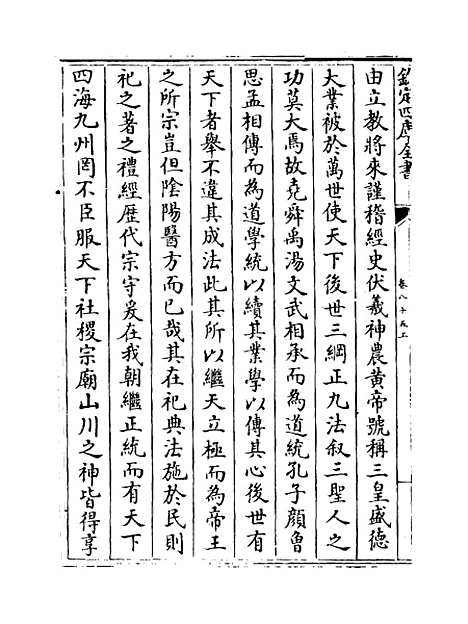 欽定四庫全書
卷八十五上
由立教將來謹稽經史伏羲神農黄帝號稱三皇盛德
大業被於萬世使天下後世三綱正九法叙三聖人之
功莫大焉故堯舜禹湯文武相承而為道統孔子顔魯
思孟相傳而為道學統以續其業學以傳其心後世有
天下者舉不違其成法此其所以繼天立極而為帝王
之所宗豈但陰陽醫方而已哉其在祀典法施於民則
祀之著之禮經歴代宗守爰在我朝繼正統而有天下
四海九州罔不臣服天下社稷宗廟山川之神皆得享